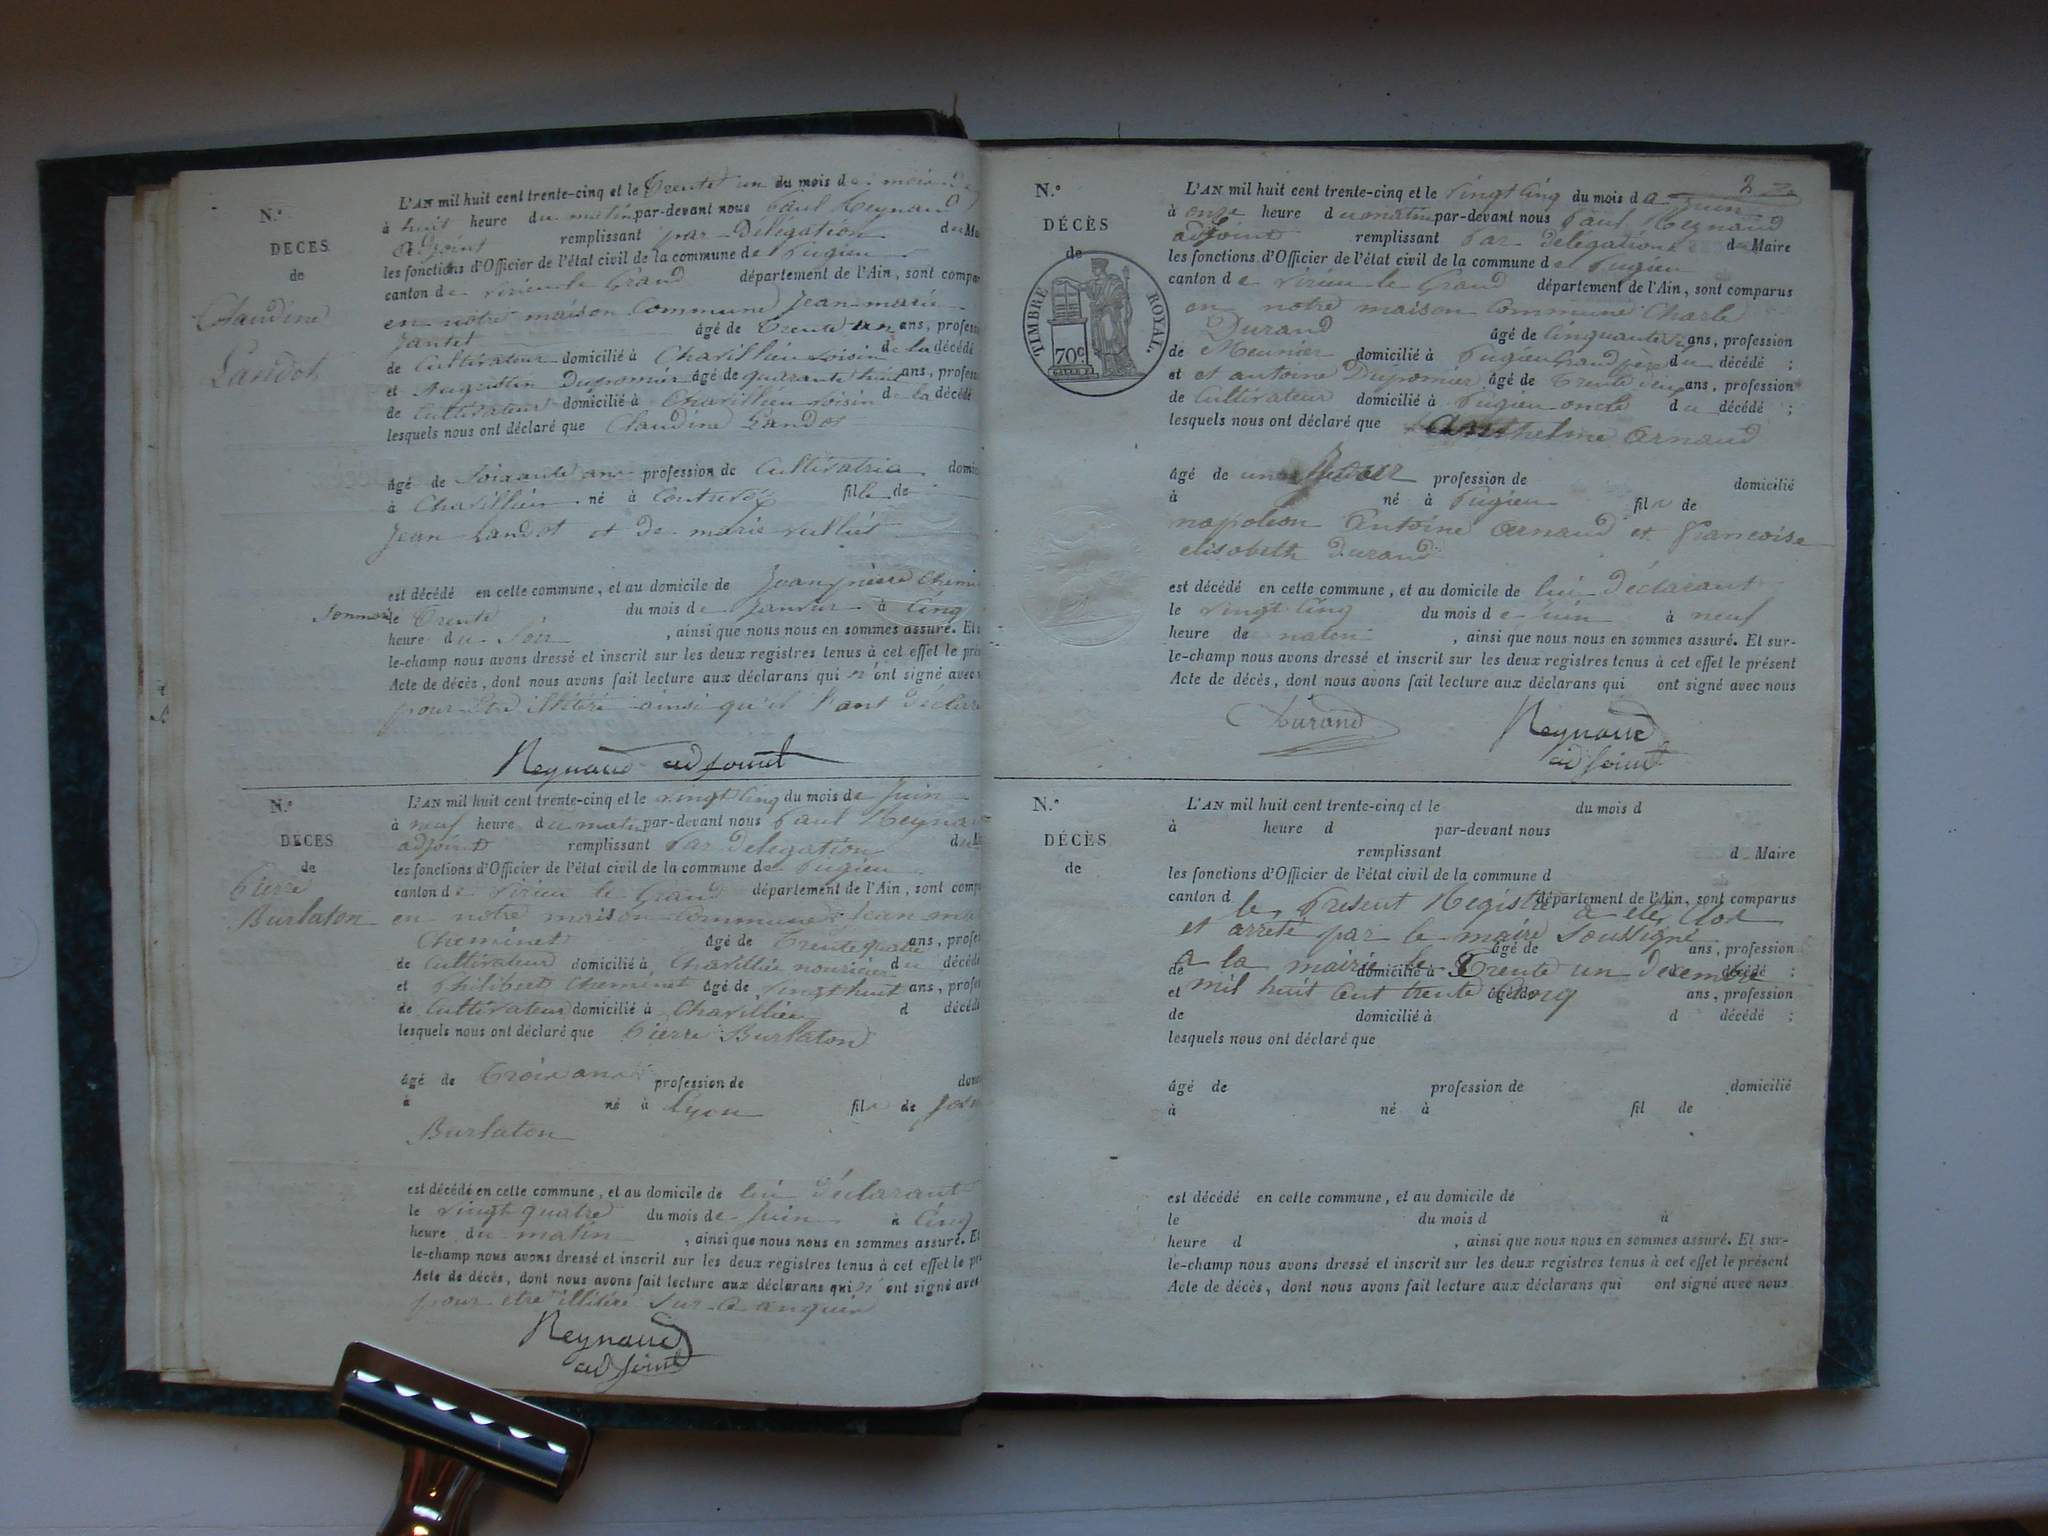 N.º
DÉCÈS
de
Claudine
Landot
L'AN mil huit cent trente-cinq et le Trente un du mois de
à huit heure du matin par-devant nous Paul Reynaud
adjoint remplissant par Délégation du Ma
les fonctions d'Officier de l'état civil de la commune de Pugieu
canton de Virieu le Grand département de l'Ain, sont compar
en notre maison Commune Jean marie
Jantet âgé de Trente un ans, profess
de Cultivateur domicilié à Chavillieu voisin de la décédé
et Augustin Dupomier âgé de quarante huit ans, profess
de Cultivateur domicilié à Chavillieu voisin de la décédé
lesquels nous ont déclaré que Claudine Landot
âgé de Soixante ans profession de Cultivatrice domici
à Chavillieu né à fille de
Jean Landot et de marie vulliet
est décédé en cette commune, et au domicile de Jean pierre Chemi
le Trente du mois de Janvier à Cinq
heure du Soir , ainsi que nous nous en sommes assuré. Et s
le-champ nous avons dressé et inscrit sur les deux registres tenus à cet effet le prés
Acte de décès, dont nous avons fait lecture aux déclarans qui n'ont signé avec n
pour être illitéré ainsi qu'il l'ont déclaré
Reynaud adjoint
N.º
DÉCÈS
de
Pierre
Burlaton
L'AN mil huit cent trente-cinq et le vingt Cinq du mois de Juin
à neuf heure du matin par-devant nous Paul Reynau
adjoint remplissant Par Delegation du M
les fonctions d'Officier de l'état civil de la commune de Pugieu
canton de Virieu le Grand département de l'Ain, sont comp
en notre maison Commune Jean ma
Cheminet âgé de Trente quatre ans, profes
de Cultivateur domicilié à Chavillieu nouricier du décédé
et Philibert Cheminet âgé de vingt huit ans, profes
de Cultivateur domicilié à Chavillieu d décédé
lesquels nous ont déclaré que Pierre Burlaton
âgé de Trois ans profession de dom
à né à Lyon fils de
Burlaton
est décédé en cette commune, et au domicile de lui déclarant
le vingt quatre du mois de Juin à Cinq
heure du matin , ainsi que nous nous en sommes assuré. Et
le-champ nous avons dressé et inscrit sur les deux registres tenus à cet effet le pré
Acte de décès, dont nous avons fait lecture aux déclarans qui n'ont signé avec
pour etre illitéré Sur Ce anquis
Reynaud
adjoint
N.º
DÉCÈS
de
TIMBRE ROYAL.
70c
L'AN mil huit cent trente-cinq et le vingt Cinq du mois d Juin
à onze heure du matin par-devant nous Paul Reynaud
adjoint remplissant Par délégation d Maire
les fonctions d'Officier de l'état civil de la commune de Pugieu
canton de Virieu le Grand département de l'Ain, sont comparus
en notre maison Commune Charle
Durand âgé de Cinquante ans, profession
de Meunier domicilié à Pugieu Grand père du décédé ;
et et antoine Dupomier âgé de Trente ans, profession
de Cultivateur domicilié à Pugieu oncle du décédé ;
lesquels nous ont déclaré que Anthelme Arnaud
âgé de profession de domicilié
à né à Pugieu fils de
napoleon Antoine Arnaud et francoise
elisabeth durand
est décédé en cette commune, et au domicile de lui Déclarant
le vingt Cinq du mois de Juin à neuf
heure de matin , ainsi que nous nous en sommes assuré. Et sur-
le-champ nous avons dressé et inscrit sur les deux registres tenus à cet effet le présent
Acte de décès, dont nous avons fait lecture aux déclarans qui ont signé avec nous
Durand Reynaud
adjoint
N.º
DÉCÈS
de
L'AN mil huit cent trente-cinq et le du mois d
à heure d par-devant nous
remplissant d Maire
les fonctions d'Officier de l'état civil de la commune d
canton d département de l'Ain, sont comparus
le Present Registre a ete Clot
et arreté par le maire Soussigné
âgé de ans, profession
a la mairie le Trente un decembre
de domicilié à d décédé ;
mil huit Cent trente Cinq
et âgé de ans, profession
de domicilié à d décédé ;
lesquels nous ont déclaré que
âgé de profession de domicilié
à né à fil de
est décédé en cette commune, et au domicile de
le du mois d à
heure d , ainsi que nous nous en sommes assuré. Et sur-
le-champ nous avons dressé et inscrit sur les deux registres tenus à cet effet le présent
Acte de décès, dont nous avons fait lecture aux déclarans qui ont signé avec nous